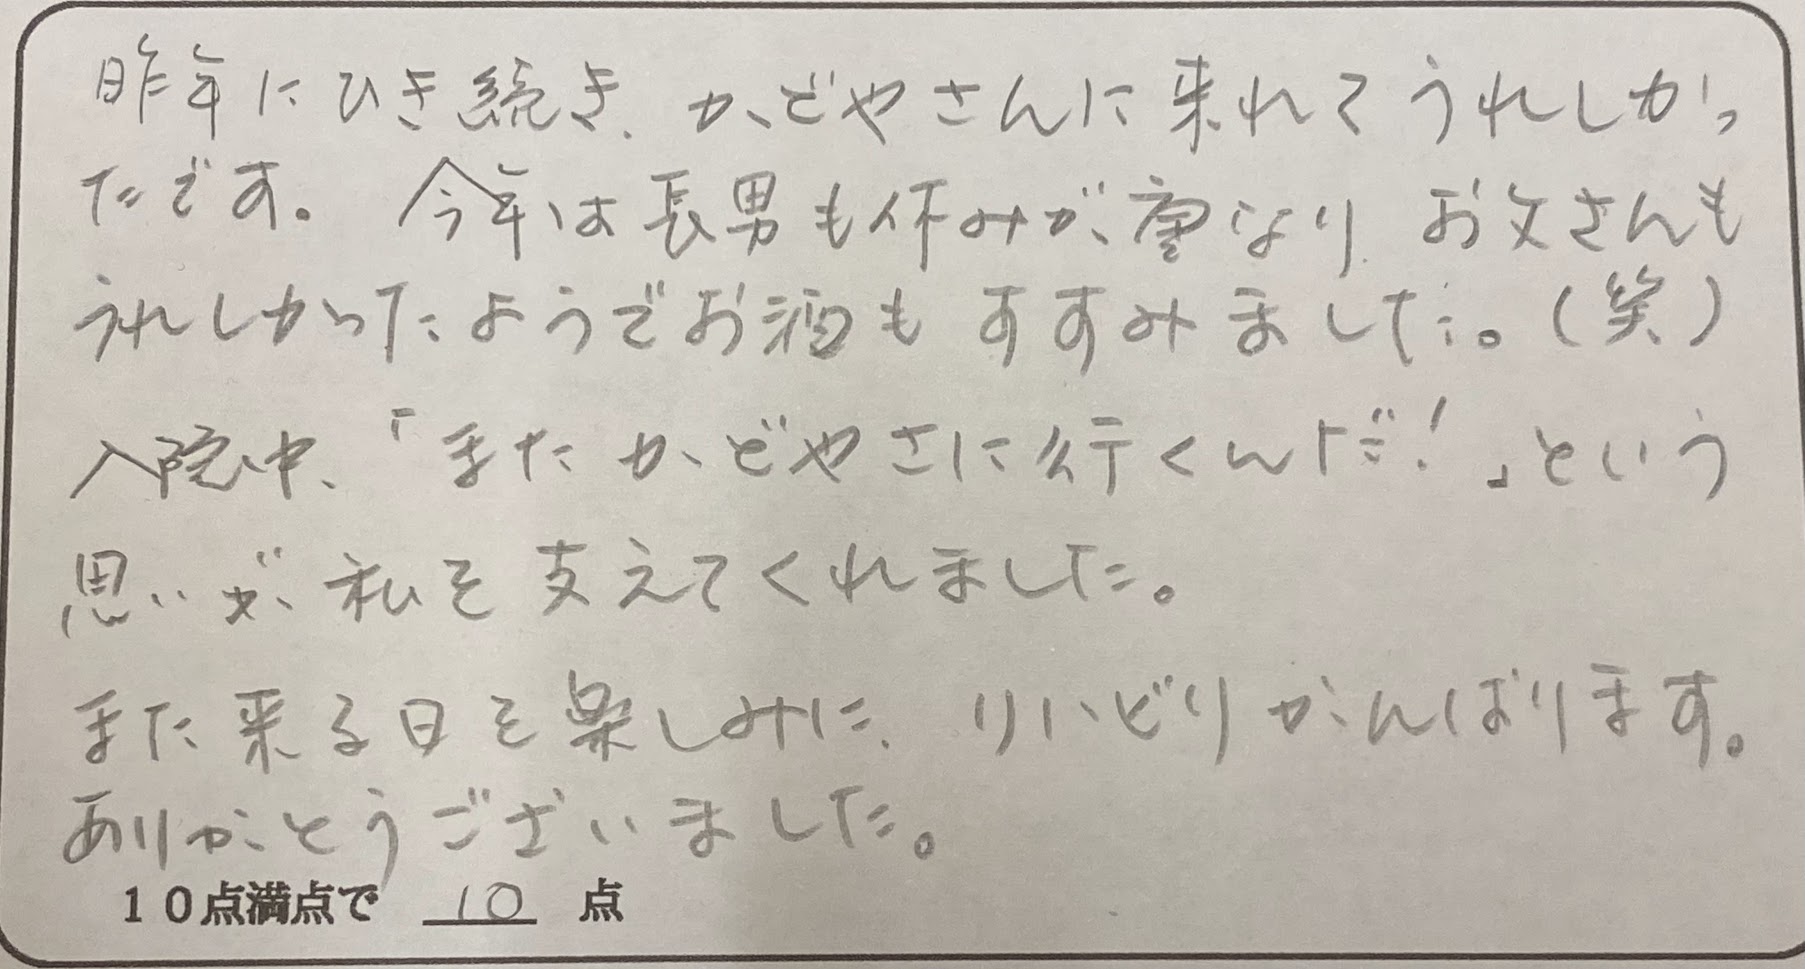 昨年にひき続き、かどやさんに来れてうれしかっ
たです。今年は長男も休みが重なり、お父さんも
うれしかったようでお酒もすすみました。（笑）
入院中、「またかどやさに行くんだ！」という
思いが私を支えてくれました。
また来る日を楽しみに、りハビリがんばります。
ありがとうございました。
10点満点で 10 点